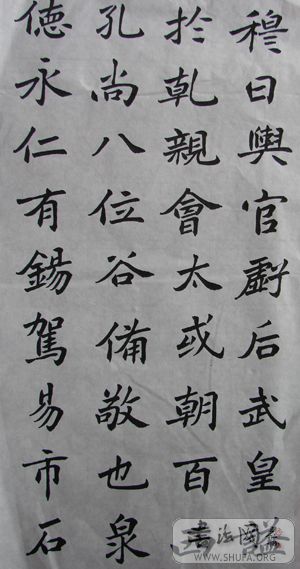 穆日與官后武皇
於乾親會太或朝百
孔尚八位谷備敬也泉
德永仁有錫駕易市石
WWW.SHUFA.ORG